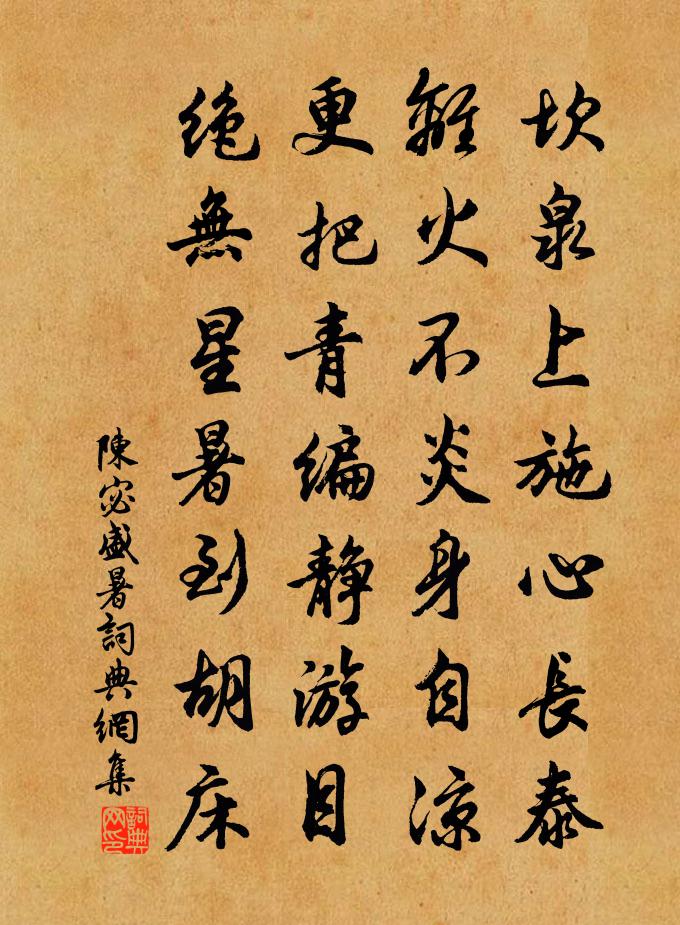 坎泉上施心長泰
離火不炎身自涼
更把青編静游目
絶無星暑到胡床
陳宓盛暑詞典網集
詞典網印